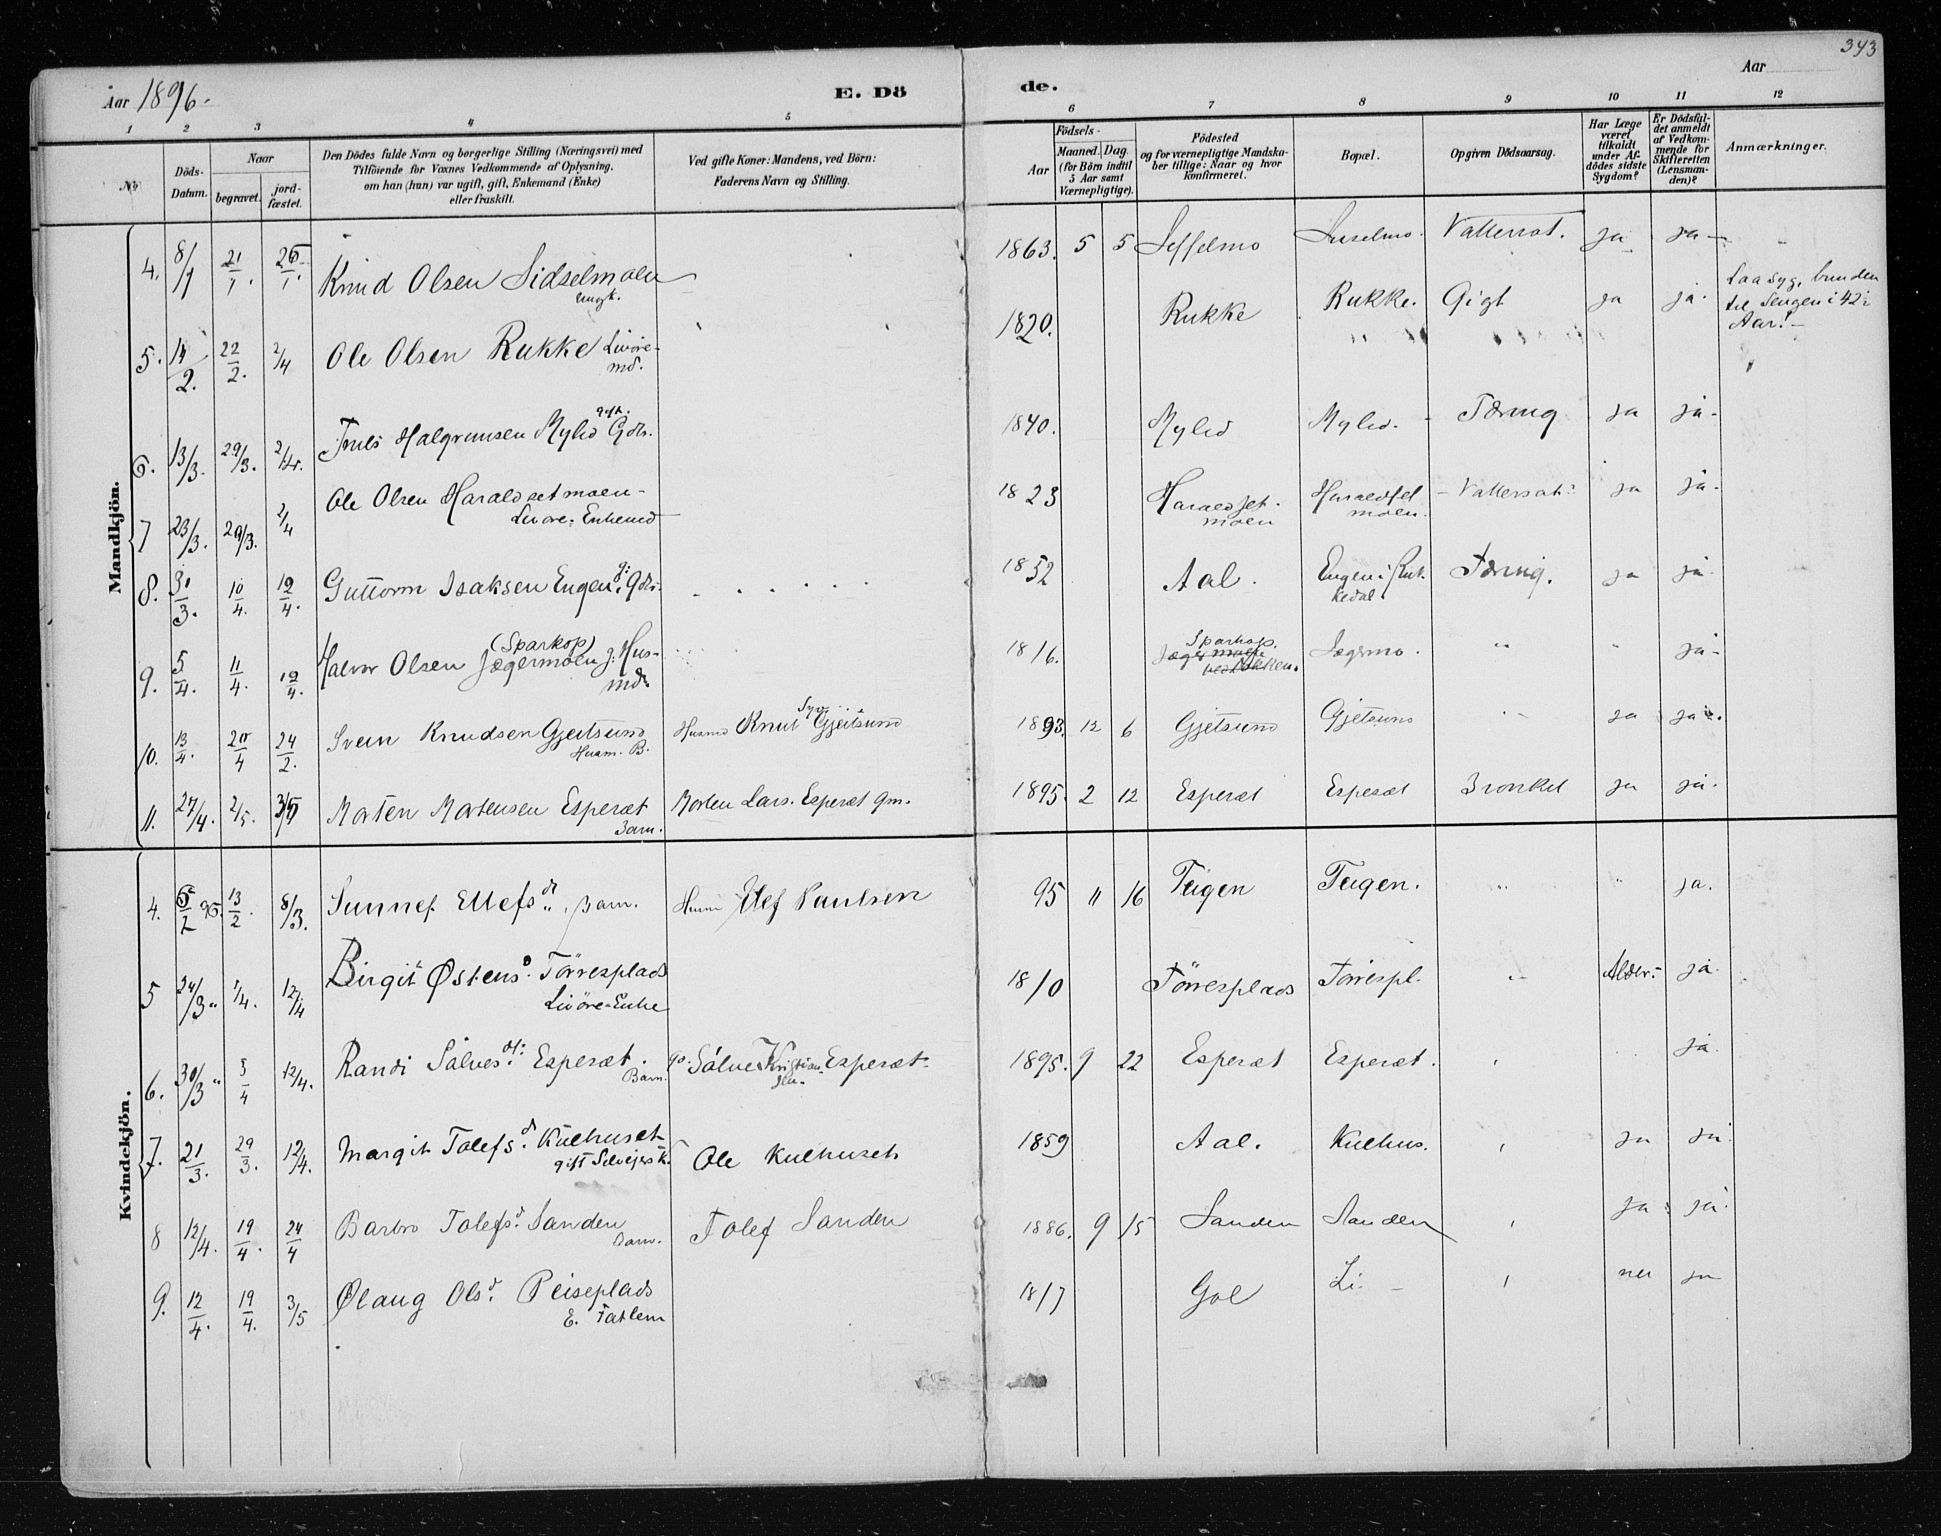 343
Aar 1896.
E. Dö
de.
Aar
1 2 3 4 5
6 7 8 9 10 11 12
No
Döds-
Datum.
Naar
begravet.
jord-
fæstet.
Den Dödes fulde Navn og borgerlige Stilling (Næringsvei) med
Tilföiende for Voxnes Vedkommende af Oplysning.
om han (hun) var ugift, gift, Enkemand (Enke)
eller fraskilt.
Ved gifte Koner: Mandens, ved Börn:
Faderens Navn og Stilling.
Födsels-
Aar
Maaned. Dag.
(for Börn indtil
5 Aar samt
Værnepligtige).
Födested
og for værnepligtige Mandska-
ber tillige: Naar og hvor
konfirmeret.
Bopæl.
Opgiven Dödsaarsag.
Har Læge
været
tilkaldt
under Af-
dödes sidste
Sygdom?
Er Dödsfal-
det anmeldt
af Vedkom-
mende for
Skifteretten
(Lensman-
den)?
Anmærkninger.
Mandkjön.
4. 8/1 21/1. 25/1. Knud Olsen Sidselmoen
ungk.
1863. 5 5 Vattersot. ja ja
5. 14/2. 22/2. 2/4 Ole Olsen Rukke Livöre-
md.
1820. Rukke Rukke. Gigt ja ja.
Laa syg, bunden
til Sengen i 42
Aar!
6. 13/3. 29/3. 2/4. Halgrimsen Mylid gift. Gdbr.
1840. Mylid Mylid. Tæring ja ja.
7 23/3. 29/3. 2/4 Ole Olsen Haraldsetmoen
Livöre-Enkemd
1823 Haraldset-
moen Haraldset
moen. Vattersot ja ja.
8. 31/3. 10/4. 19/4. Guttorm Isaksen Engen g: Gdbr.
1852 Aal. Engen i Ruk-
kedal. Tæring. ja ja.
9. 5/4. 11/4. 19/4. Halvor Olsen (Sparkop) Jægermoen g. Hus-
md.
1816. Sparkop
Jægermo. " " ja.
10. 13/4. 20/4 24/2. Svein Knudsen Gjeitsund
Husm. B.
Husmd Knut Gjeitsund
1893. 12 6 Gjetsund Gjetsund ja ja.
11. 27/4. 2/5. 3/5 Morten Mortensen Esperæt
Barn.
Morten Lars. Esperæt gm.
1895. 2 12 Esperæt Esperæt Bronkit ja ja.
Kvindekjön.
4. 5/2 96. 13/2. 8/3. Sunnef Ellefsd. Barn.
Husm Elef Paulsen
95 11 16 Teigen Teigen. " " ja.
5 24/3 " 1/4. 12/4 Birgit Østensd. Törresplads
Livöre-Enke
1810 Törresplads Törrespl. " Alder. ja.
6. 30/3 " 3/4 12/4. Randi Sølvesdt: Esperæt.
Barn.
Sølve Kristian-
sen. Esperæt.
1895. 9 22 Esperæt Esperæt. ja.
7. 21/3. 29/3. 12/4. Margit Tolefsd. Kulhuset
gift Selvejers K.
Ole Kulhuset
1859 Aal. Kulhus. ja ja.
8 12/4. 19/4. 24/4 Barbro Tolefsd. Sanden
Barn.
Tolef Sanden
1886. 9 15 Sanden Sanden ja ja.
9. 12/4. 19/4. 3/5 Ølaug Olsd. Peiseplads
E. Fatlem
1817 Gol Li nei ja